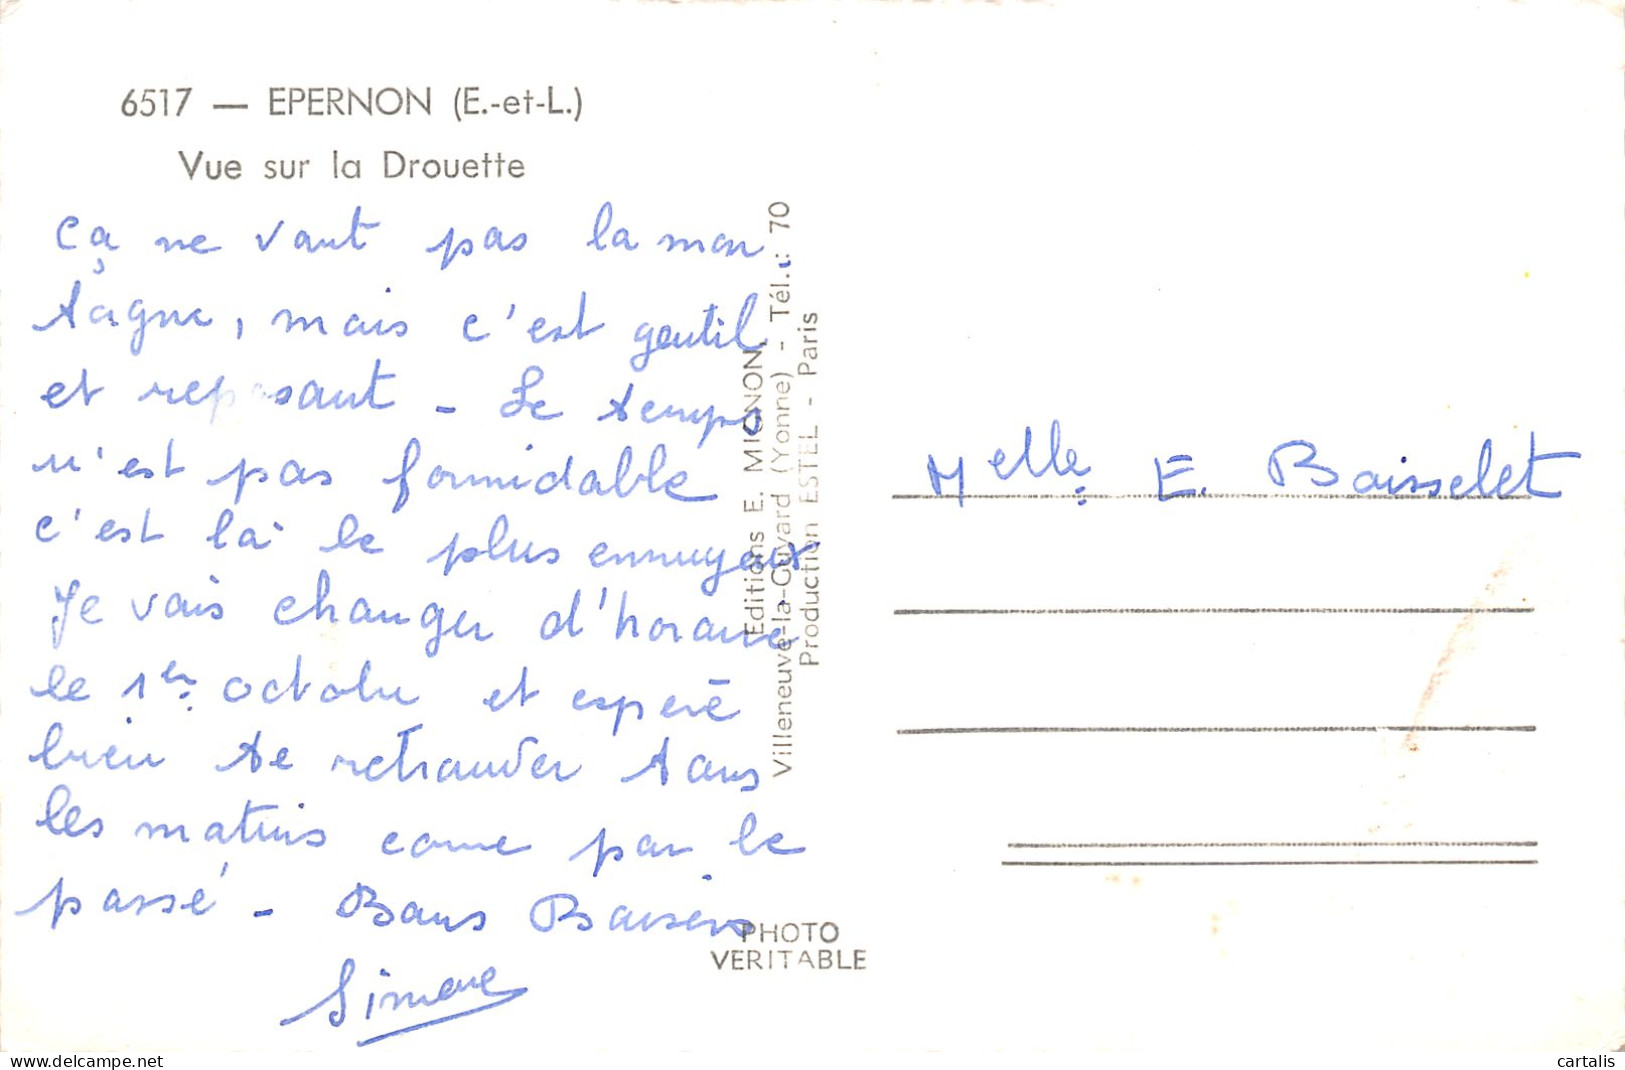 6517 — EPERNON (E.-et-L.)
Vue sur la Drouette
Ça ne vaut pas la mon-
tagne, mais c'est gentil
et reposant - Le temps
n'est pas formidable
c'est là le plus ennuyeux
Je vais changer d'horaire
le 1er octobre et espère
bien te retrouver tous
les matins come par le
passé - Bons Baisers
Simone
Editions E. MIGNON,
Villeneuve-la-Guyard (Yonne) - Tél. : 70
Production ESTEL - Paris
PHOTO
VERITABLE
Melle. E. Boisselet
www.delcampe.net
cartalis